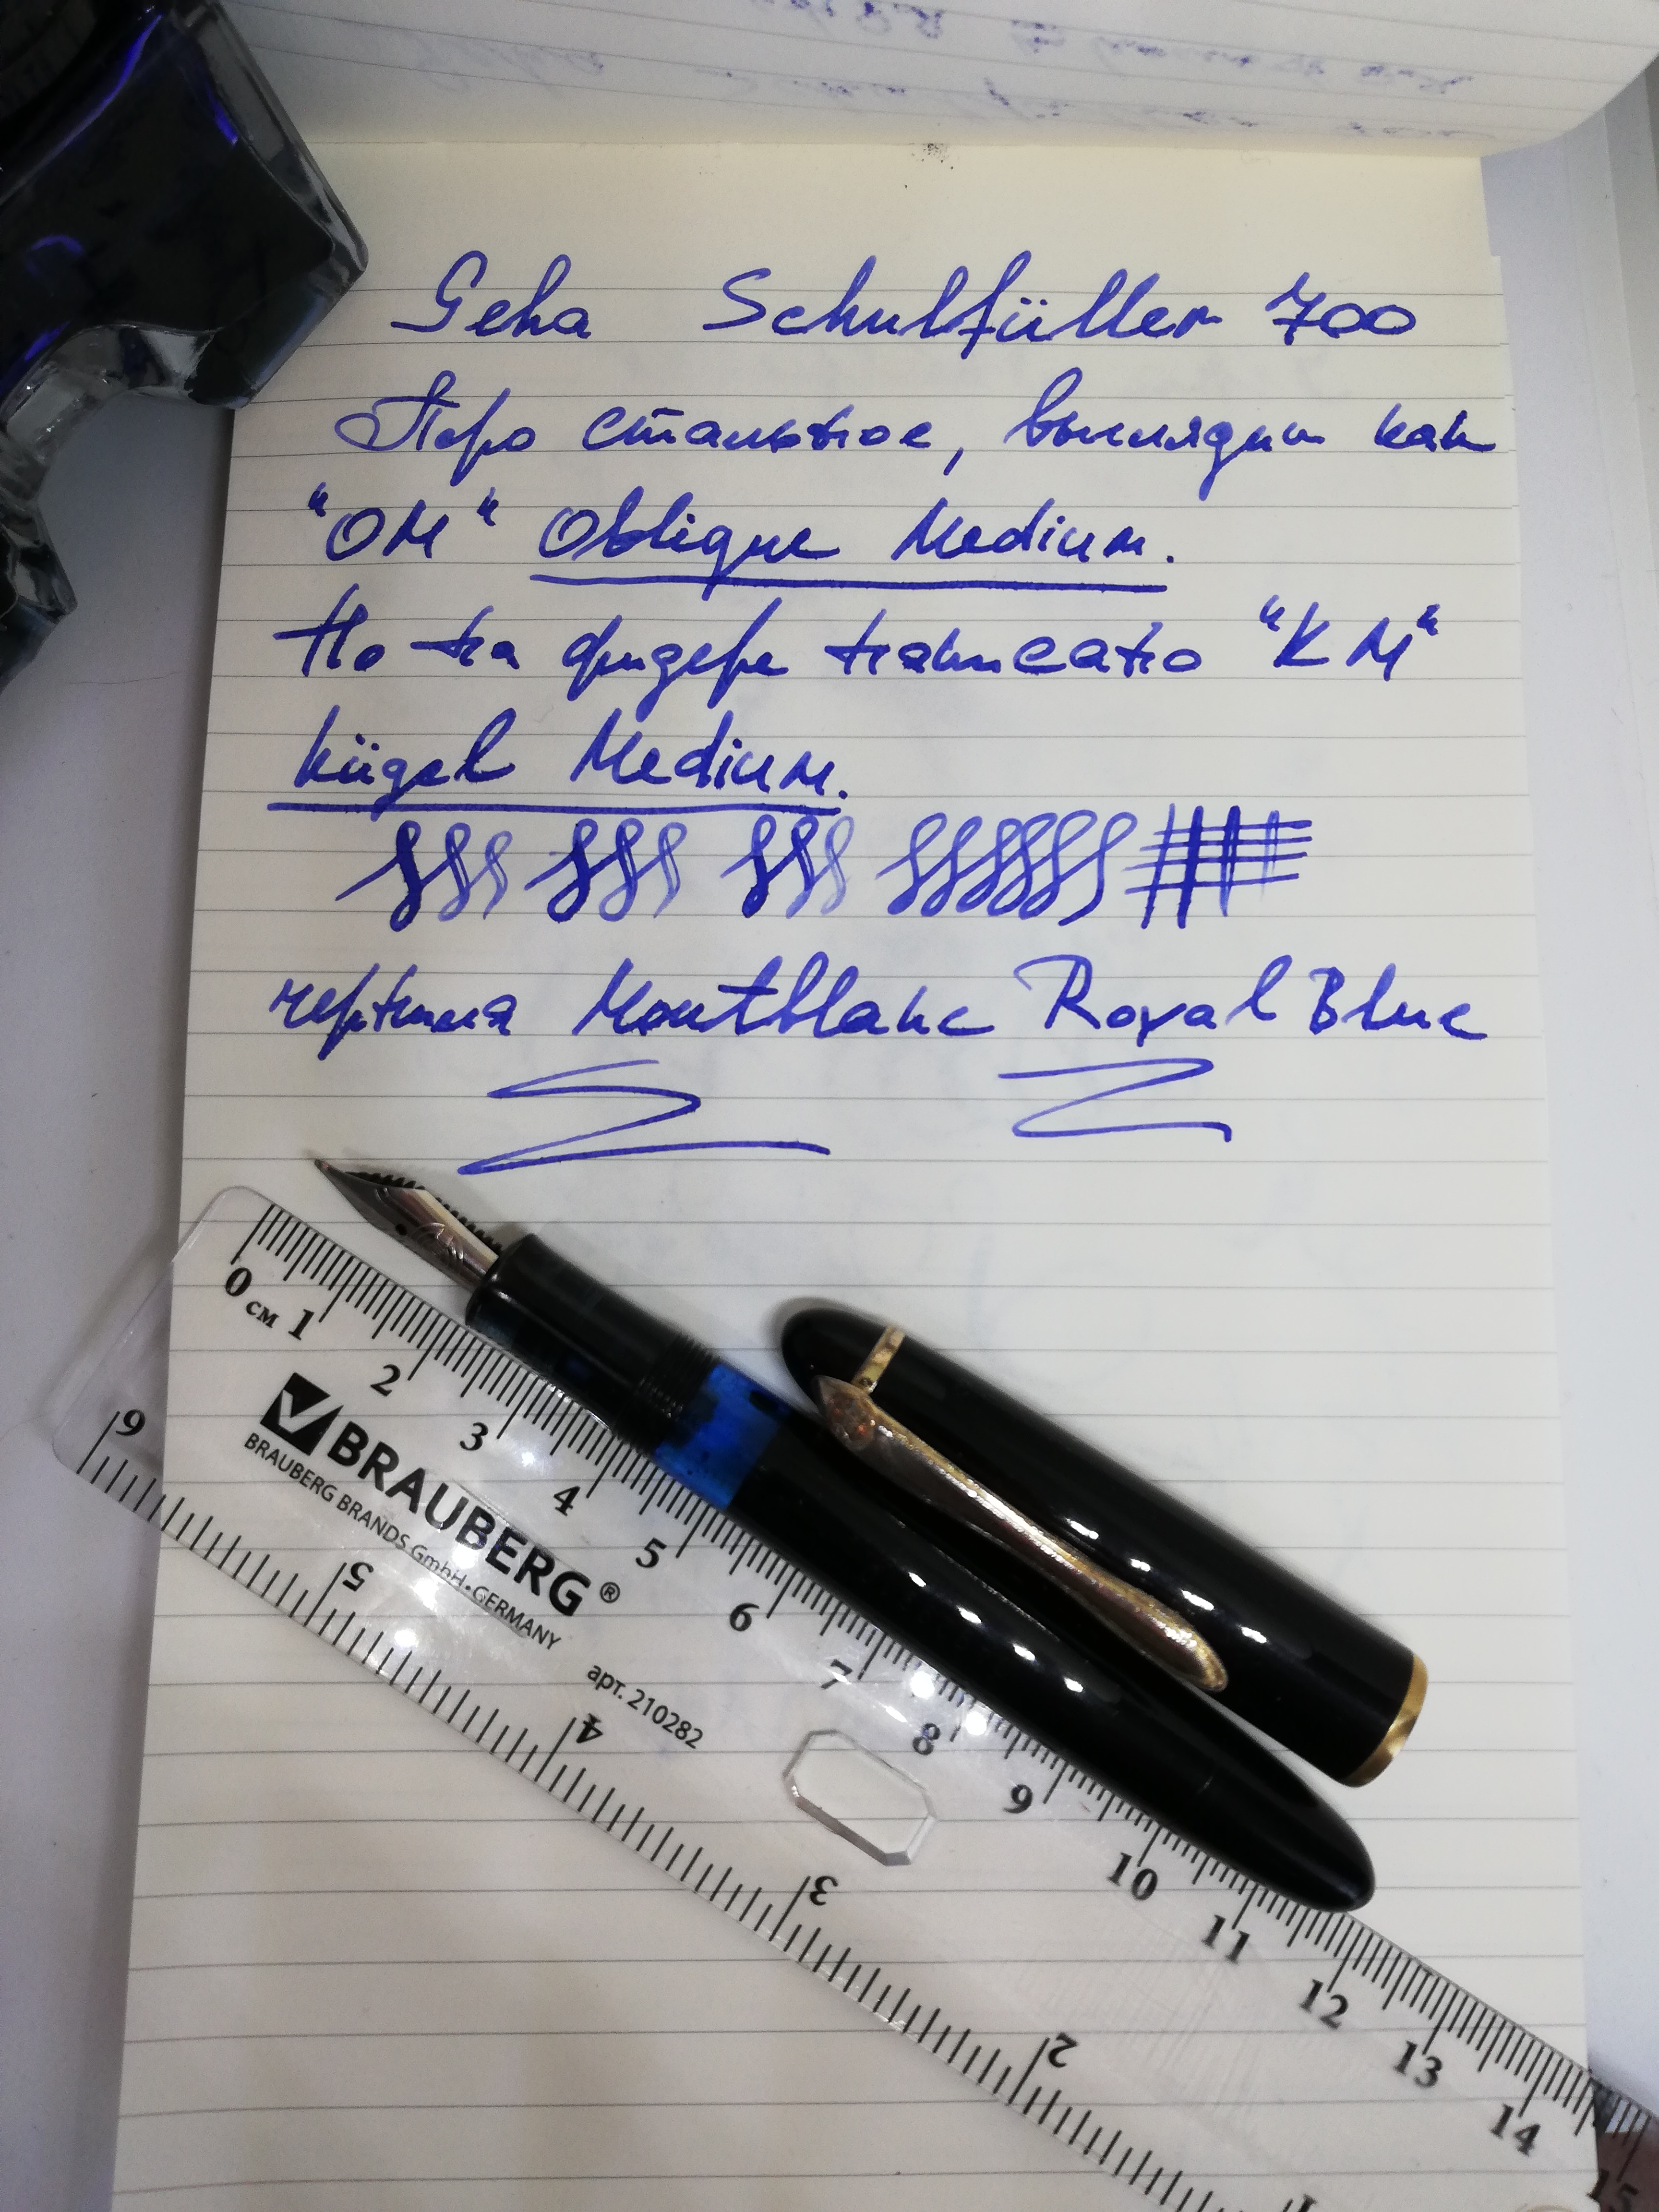 Geha Schulfüller 700
Перо стальное, выглядит как
"ОМ" Oblique Medium.
Но на фидере написано "КМ"
Kügel Medium.
чернила Montblanc Royal Blue
0 см 1 2 3 4 5 6 7 8 9 10 11 12 13 14 15
BRAUBERG®
BRAUBERG BRANDS GmbH • GERMANY
арт. 210282
6 5 4 3 2 1